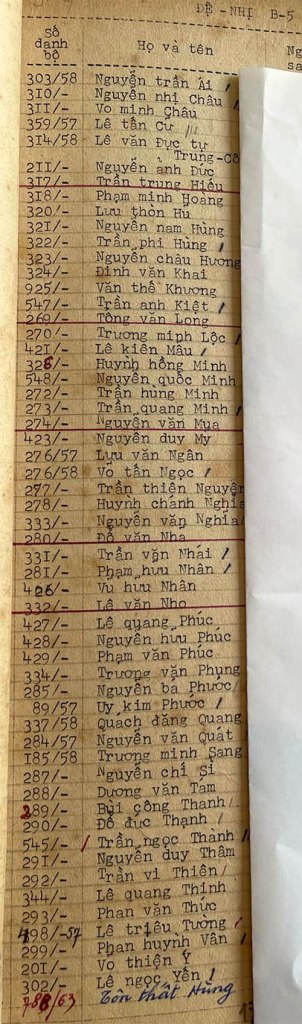 ĐỆ-NHỊ B-5
Số danh bộ Họ và tên Ng
303/58 Nguyễn trần Ái /
310/- Nguyễn nhị Châu /
311/- Võ minh Châu
359/57 Lê tấn Cư /
314/58 Lê văn Đực tự
Trung-Cô
211/- Nguyễn ánh Đức
317/- Trần trung Hiếu
318/- Phạm minh Hoàng
320/- Lưu thòn Hu
321/- Nguyễn nam Hùng
322/- Trần phi Hùng /
323/- Nguyễn châu Hương
324/- Đinh văn Khai
925/- Văn thế Khương
547/- Trần anh Kiệt /
269/- Tống văn Long
270/- Trương minh Lộc /
421/- Lê kiên Mậu /
328/- Huỳnh hồng Minh
548/- Nguyễn quốc Minh
272/- Trần hùng Minh
273/- Trần quang Minh /
274/- Nguyễn văn Mua
423/- Nguyễn duy Mỹ
276/57 Lưu văn Ngân
276/58 Võ tấn Ngọc /
277/- Trần thiện Nguyện
278/- Huỳnh chánh Nghĩa
333/- Nguyễn văn Nghĩa
280/- Đỗ văn Nhã
331/- Trần văn Nhái /
281/- Phạm hữu Nhân /
426/- Vũ hữu Nhân
332/- Lê văn Nho
427/- Lê quang Phúc
428/- Nguyễn hữu Phúc
429/- Phạm văn Phúc
334/- Trương văn Phụng
285/- Nguyễn bá Phước /
89/57 Uy kim Phước /
337/58 Quách đăng Quang
284/57 Nguyễn văn Quát
185/58 Trương minh Sang
287/- Nguyễn chí Sĩ
288/- Dương văn Tam
289/- Bùi công Thanh /
290/- Đỗ đức Thạnh /
545/- / Trần ngọc Thành /
291/- Nguyễn duy Thâm
292/- Trần vi Thiên /
344/- Lê quang Thịnh
293/- Phan văn Thức
498/-57 Lê triệu Tường /
299/- Phan huỳnh Vân /
201/- Võ thiện Ý
302/- Lê ngọc Yến /
/63 Tôn thất Hùng